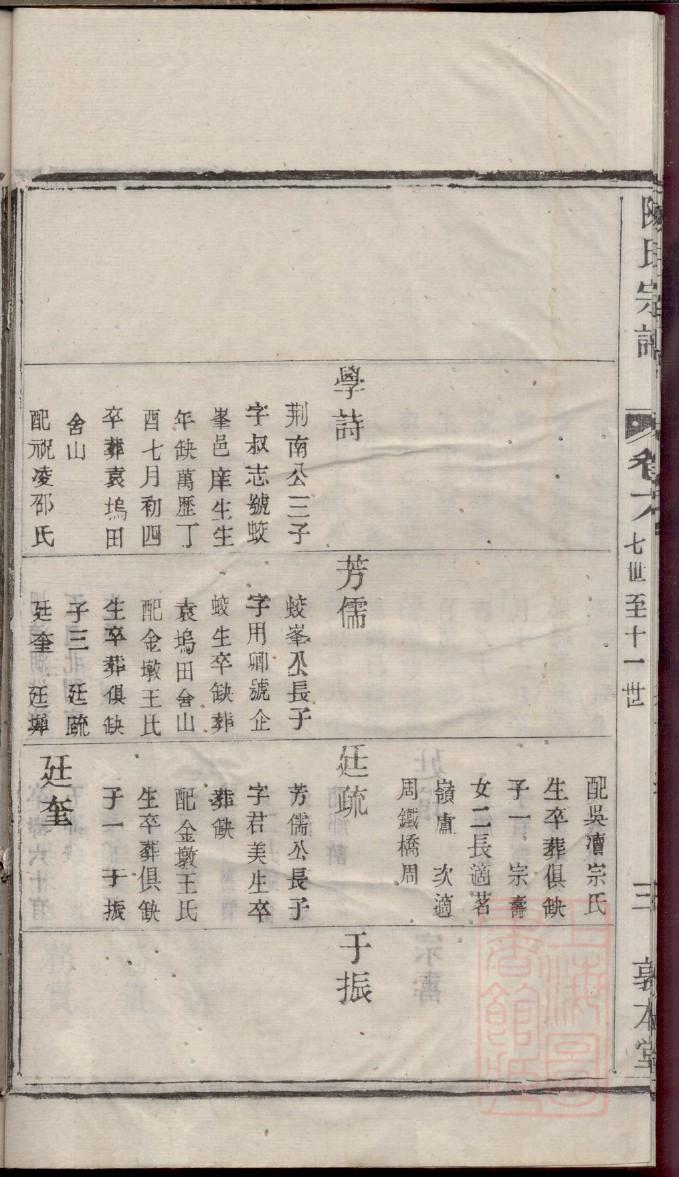 陳氏宗譜
卷六
七世至十一世
三
敦本堂
學詩
荆南公三子
字叔志號蛟
峯邑庠生生
年缺萬歷丁
酉七月初四
卒葬袁塢田
舍山
配祝凌邵氏
芳儒
蛟峯公長子
字用卿號企
蛟生卒缺葬
袁塢田舍山
配金墩王氏
生卒葬俱缺
子三 廷疏
廷奎 廷墀
配吳瀆宗氏
生卒葬俱缺
子一 宗壽
女二長適茗
嶺盧 次適
周鐵橋周
廷疏
芳儒公長子
字君美生卒
葬缺
配金墩王氏
生卒葬俱缺
子一 于振
廷奎
于振
上海圖
書館藏